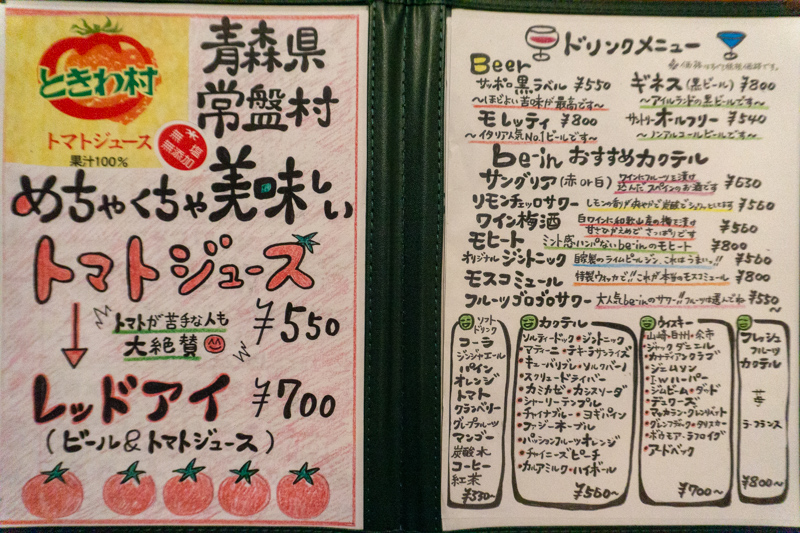 ときわ村
トマトジュース
果汁100%
無塩
無添加
青森県
常盤村
めちゃくちゃ美味しい
トマトジュース
トマトが苦手な人も
大絶賛
¥550
レッドアイ ¥700
(ビール&トマトジュース)
ドリンクメニュー
Beer
サッポロ黒ラベル ¥550
〜ほどよい苦味が最高です〜
モレッティ ¥800
〜イタリア人気No.1ビールです〜
ギネス(黒ビール) ¥800
〜アイルランドの黒ビールです〜
サントリーオールフリー ¥540
〜ノンアルコールビールです〜
be-in おすすめカクテル
サングリア(赤or白) ワインにフルーツを漬け込んだスペインのお酒です ¥630
リモンチェッロサワー ¥560
ワイン梅酒 白ワインに和歌山産の梅を漬け 甘さひかえめで さっぱりです ¥560
モヒート ミント感ハンパないbe-inのモヒート ¥800
オリジナルジントニック 自家製のライムピールジン これはうまい。!! ¥560
モスコミュール 特製ウォッカで!!これが本当のモスコミュール ¥800
フルーツゴロゴロサワー 大人気be-inのサワー!!フルーツは選んでね ¥550〜
ソフトドリンク
コーラ
ジンジャエール
パイン
オレンジ
トマト
クランベリー
グレープフルーツ
マンゴー
炭酸水
コーヒー
紅茶
¥330〜
カクテル
ソルティードック・ジントニック
マティーニ・テキーラサンライズ
キューバリブレ・ソルクバーノ
スクリュードライバー
カミカゼ・カシスソーダ
シャーリーテンプル
チャイナブルー・ヨギパイン
ファジーネーブル
パッションフルーツオレンジ
チャイニーズピーチ
カルアミルク・ハイボール
¥560〜
ウィスキー
山崎・白州・余市
ジャックダニエル
カナディアンクラブ
ジェムソン
I.Wハーパー
ジムビーム・ターキー
デュワーズ
マッカラン・グレンリベット
グレンフィディック・タリスカー
ボウモア・ラフロイグ
アードベック
¥700〜
フレッシュ
フルーツ
カクテル
苺
ラ・フランス
¥800〜